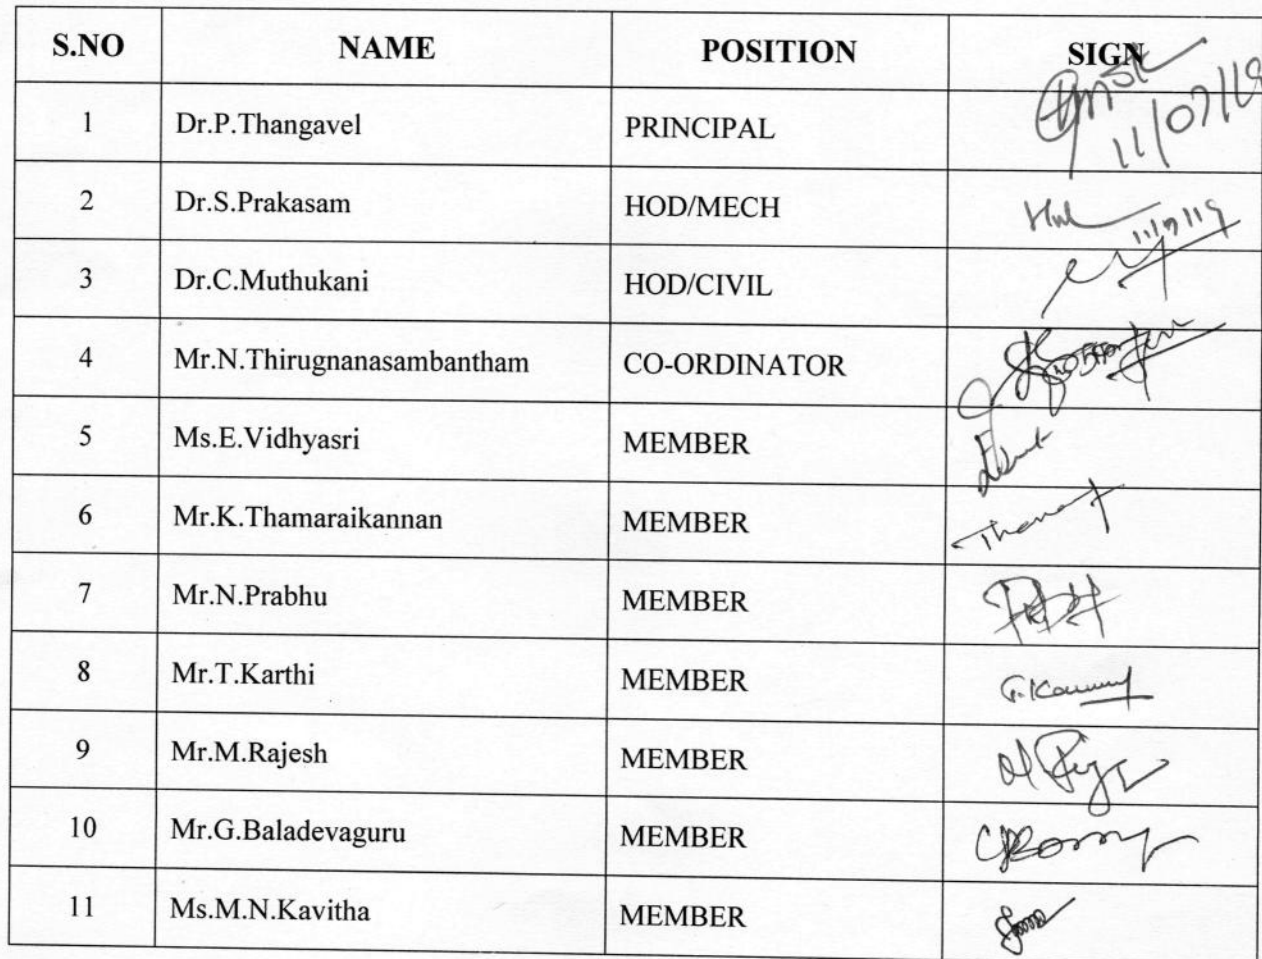 S.NO NAME POSITION SIGN
1 Dr.P.Thangavel PRINCIPAL 11/07/19
2 Dr.S.Prakasam HOD/MECH
3 Dr.C.Muthukani HOD/CIVIL
4 Mr.N.Thirugnanasambantham CO-ORDINATOR
5 Ms.E.Vidhyasri MEMBER
6 Mr.K.Thamaraikannan MEMBER
7 Mr.N.Prabhu MEMBER
8 Mr.T.Karthi MEMBER
9 Mr.M.Rajesh MEMBER
10 Mr.G.Baladevaguru MEMBER
11 Ms.M.N.Kavitha MEMBER